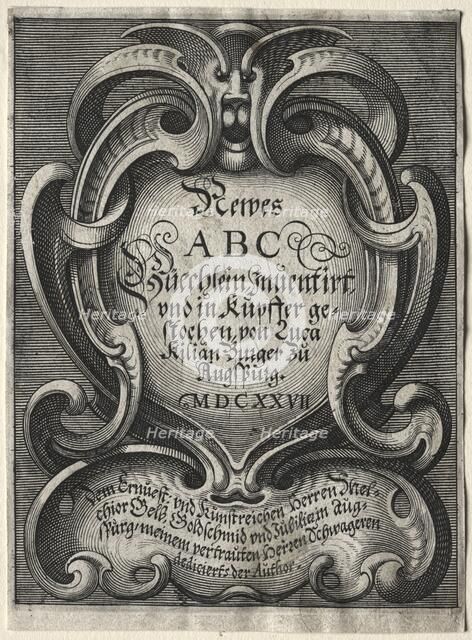 Newes
ABC
Büechlein Inuentirt
vnd in Kupffer ge=
stochen, von Luca
Kilian Burger zu
Augspurg.
MDCXXVII
dem Ernuest: vnd Kunstreichen Herren Mel=
chior Gelb Goldschmid vnd Jubilier in Aug=
spurg, meinem vertrauten Herren Schwageren
dedicierts der Author.
Heritage
Heritage
Heritage
Heritage
Heritage
Heritage
Heritage
Heritage